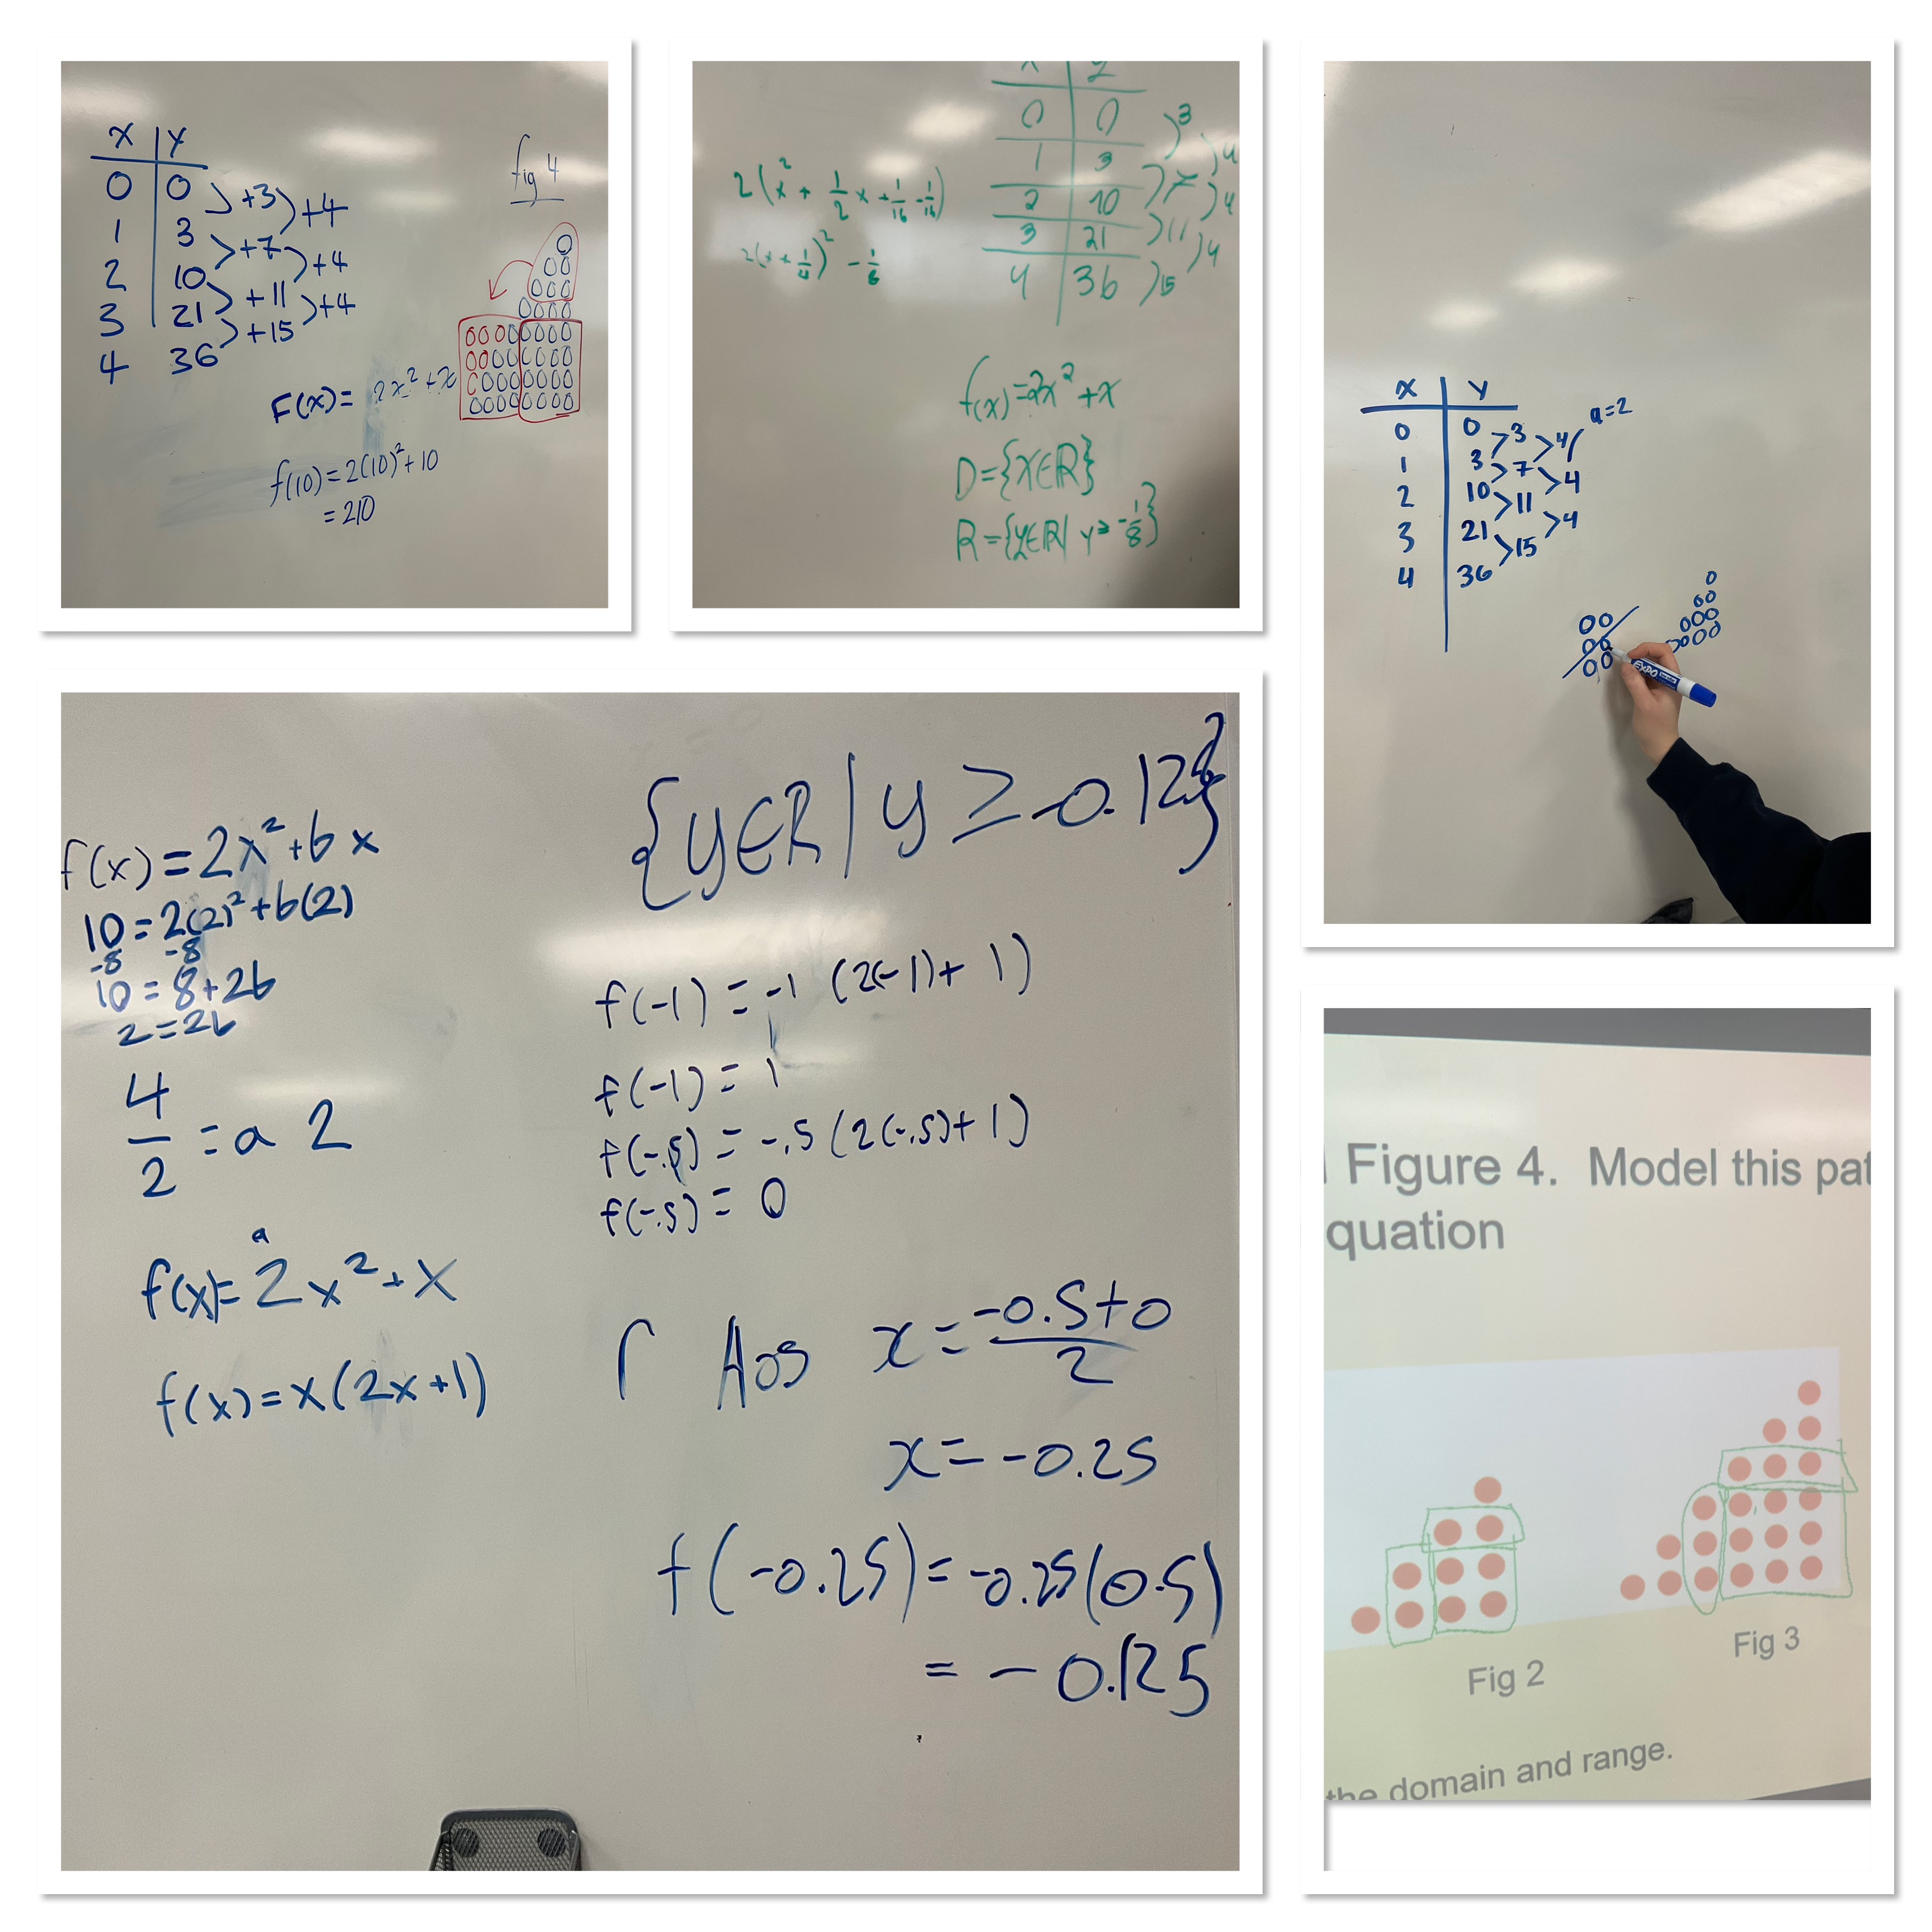 x | y
0 | 0
1 | 3
2 | 10
3 | 21
4 | 36
+3
+7
+11
+15
+4
+4
+4
fig 4
F(x) = 2x² + x
f(10) = 2(10)² + 10
= 210
x | y
0 | 0
1 | 3
2 | 10
3 | 21
4 | 36
3
7
11
15
4
4
4
2(x² + 1/2 x + 1/16 - 1/16)
2(x + 1/4)² - 1/8
f(x) = 2x² + x
D = {x∈ℝ}
R = {y∈ℝ | y ≥ -1/8}
x | y
0 | 0
1 | 3
2 | 10
3 | 21
4 | 36
3
7
11
15
4
4
4
a=2
EXPO
f(x) = 2x² + bx
10 = 2(2)² + b(2)
-8 -8
10 = 8 + 2b
2 = 2b
4/2 = a 2
a
f(x) = 2x² + x
f(x) = x(2x+1)
{y∈R | y ≥ -0.12
f(-1) = -1 (2(-1) + 1)
f(-1) = 1
f(-.5) = -.5 (2(-.5) + 1)
f(-.5) = 0
AOS x = (-0.5+0)/2
x = -0.25
f(-0.25) = -0.25(0.5)
= -0.125
Figure 4. Model this pat
quation
Fig 2
Fig 3
the domain and range.